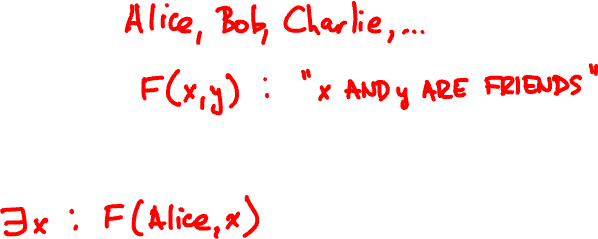 Alice, Bob, Charlie,...
F(x,y) : "x AND y ARE FRIENDS"
∃x : F(Alice,x)